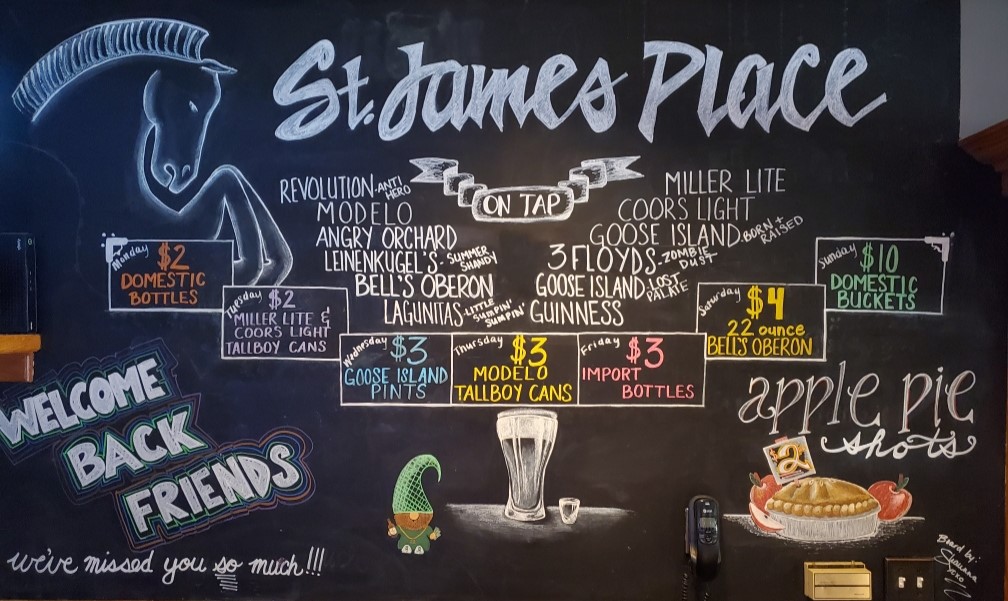 St. James Place
ON TAP
REVOLUTION - ANTI HERO
MODELO
ANGRY ORCHARD
LEINENKUGEL'S - SUMMER SHANDY
BELL'S OBERON
LAGUNITAS - LITTLE SUMPIN' SUMPIN'
MILLER LITE
COORS LIGHT
GOOSE ISLAND - BORN + RAISED
3 FLOYDS - ZOMBIE DUST
GOOSE ISLAND - LOST PALATE
GUINNESS
Monday
$2
DOMESTIC
BOTTLES
Tuesday
$2
MILLER LITE &
COORS LIGHT
TALLBOY CANS
Wednesday
$3
GOOSE ISLAND
PINTS
Thursday
$3
MODELO
TALLBOY CANS
Friday
$3
IMPORT
BOTTLES
Saturday
$4
22 ounce
BELL'S OBERON
Sunday
$10
DOMESTIC
BUCKETS
WELCOME
BACK
FRIENDS
we've missed you so much!!!
apple pie
shots
$2
Board by:
xoxo